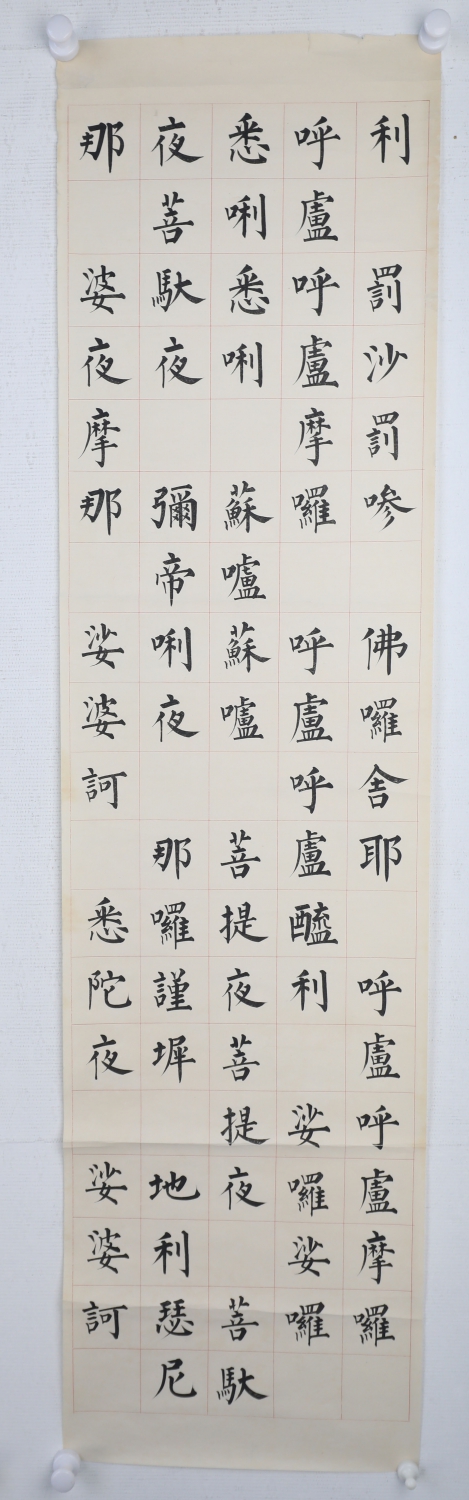 利　罰沙罰嘇　佛囉舍耶　呼盧呼盧摩囉
呼盧呼盧摩囉　呼盧呼盧醯利　娑囉娑囉
悉唎悉唎　蘇嚧蘇嚧　菩提夜菩提夜　菩馱
夜菩馱夜　彌帝唎夜　那囉謹墀　地利瑟尼
那　婆夜摩那　娑婆訶　悉陀夜　娑婆訶